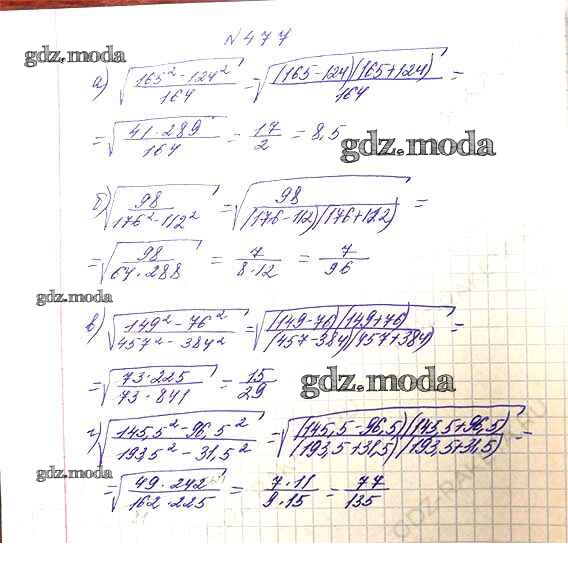 N 477
gdz.moda
а) √((165² - 124²)/164) = √((165-124)(165+124)/164) =
= √((41·289)/164) = 17/2 = 8,5
gdz.moda
б) √(98/(176² - 112²)) = √(98/((176-112)(176+112))) =
= √(98/(64·288)) = 7/(8·12) = 7/96
gdz.moda
в) √((149² - 76²)/(457² - 384²)) = √((149-76)(149+76)/((457-384)(457+384))) =
= √((73·225)/(73·841)) = 15/29
gdz.moda
г) √((145,5² - 96,5²)/(193,5² - 31,5²)) = √((145,5-96,5)(145,5+96,5)/((193,5+31,5)(193,5+31,5))) =
gdz.moda
= √((49·242)/(162·225)) = (7·11)/(9·15) = 77/135